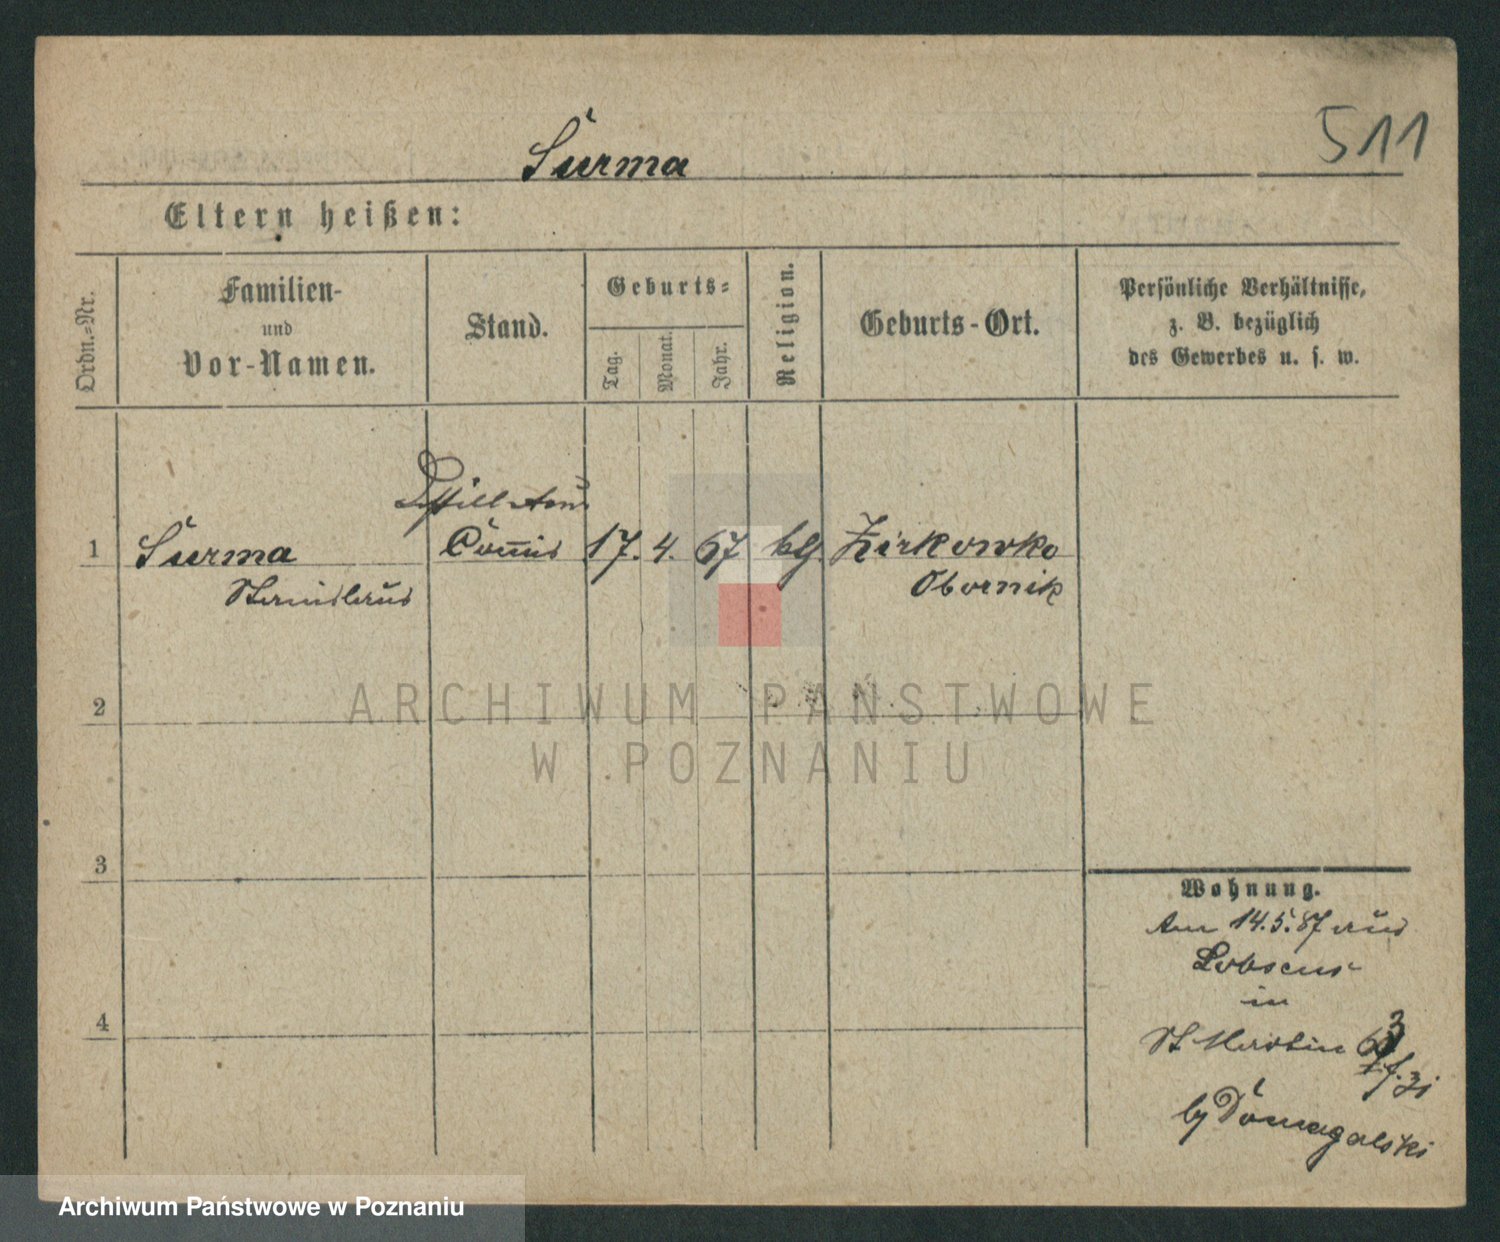 Surma
511
Eltern heißen:
Ordn.=Nr.
Familien-
und
Vor-Namen.
Stand.
Geburts=
Tag.
Monat.
Jahr.
Religion.
Geburts-Ort.
Persönliche Verhältnisse,
z. B. bezüglich
des Gewerbes u. s. w.
Destillateur
1 Surma Commis 17. 4. 67 Zirkowko
Stanislaus Obornik
2
3
4
Wohnung.
Am 14.5.87 aus
Lobsens
in
St Martin
by Domagalski
ARCHIWUM PAŃSTWOWE
W POZNANIU
Archiwum Państwowe w Poznaniu